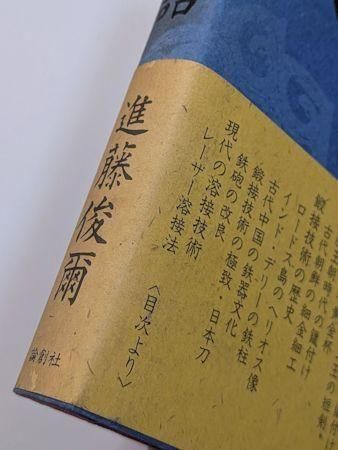 古代朝鮮の細金細工
鍛接技術の歴史
ロードス島のヘリオス像
インド・デリーの鉄柱
古代中国の鉄器文化
鍛接技術の極致・日本刀
鉄砲の改良
現代の溶接技術
レーザー溶接法
〈目次より〉
進藤俊爾
論創社